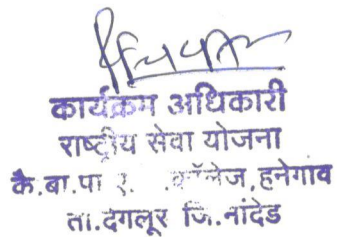 कार्यक्रम अधिकारी
राष्ट्रीय सेवा योजना
कै.बा.पा कॉलेज,हनेगांव
ता.देगलूर जि.नांदेड